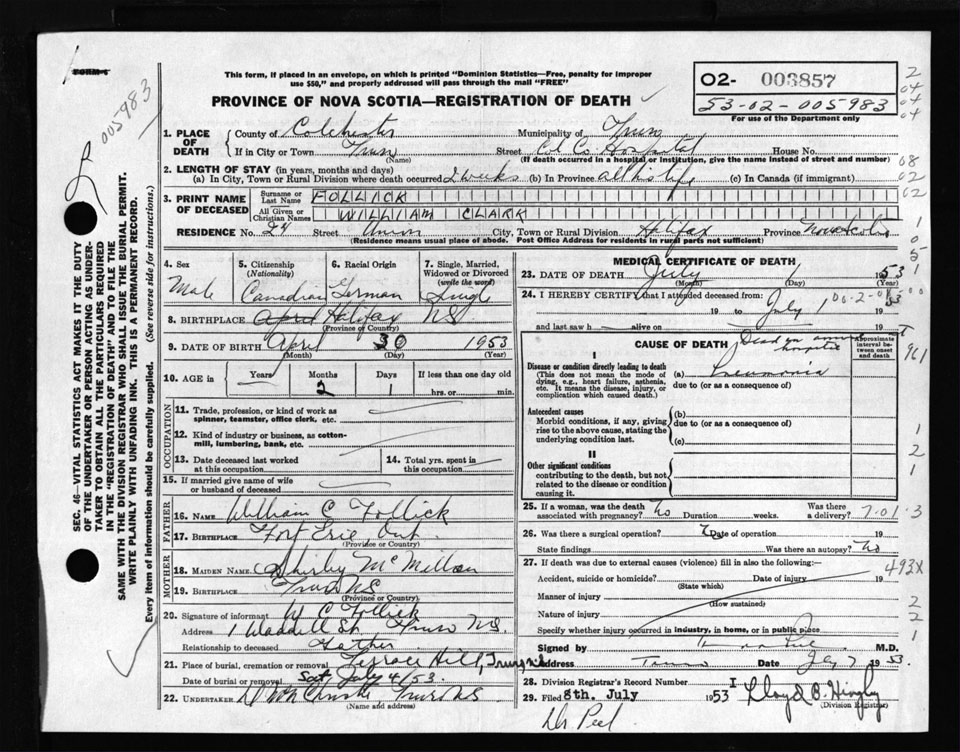 FORM 6
005983
This form, if placed in an envelope, on which is printed "Dominion Statistics—Free, penalty for improper
use $50," and properly addressed will pass through the mail "FREE"
PROVINCE OF NOVA SCOTIA—REGISTRATION OF DEATH
02- 003857
53-02-005983
For use of the Department only
SEC. 46—VITAL STATISTICS ACT MAKES IT THE DUTY
OF THE UNDERTAKER OR PERSON ACTING AS UNDER-
TAKER TO OBTAIN ALL THE PARTICULARS REQUIRED
IN THE "REGISTRATION OF DEATH" AND TO FILE THE
SAME WITH THE DIVISION REGISTRAR WHO SHALL ISSUE THE BURIAL PERMIT.
WRITE PLAINLY WITH UNFADING INK. THIS IS A PERMANENT RECORD.
Every item of information should be carefully supplied. (See reverse side for instructions.)
1. PLACE OF DEATH
County of Colchester Municipality of Truro
If in City or Town Truro Street Col Co. Hospital House No.
(Name) (If death occurred in a hospital or institution, give the name instead of street and number)
2. LENGTH OF STAY (in years, months and days)
(a) In City, Town or Rural Division where death occurred 2 weeks (b) In Province all his life (c) In Canada (if immigrant)
3. PRINT NAME OF DECEASED
Surname or Last Name FOLLICK
All Given or Christian Names WILLIAM CLARK
RESIDENCE No. 24 Street Union City, Town or Rural Division Halifax Province Nova Scotia
(Residence means usual place of abode. Post Office Address for residents in rural parts not sufficient)
4. Sex Male
5. Citizenship (Nationality) Canadian
6. Racial Origin German
7. Single, Married, Widowed or Divorced (write the word) Single
8. BIRTHPLACE April Halifax NS
(Province or Country)
9. DATE OF BIRTH April 30 1953
(Month) (Day) (Year)
10. AGE in Years Months 2 Days 1 If less than one day old
hrs. or min.
OCCUPATION
11. Trade, profession, or kind of work as spinner, teamster, office clerk, etc.
12. Kind of industry or business, as cotton-mill, lumbering, bank, etc.
13. Date deceased last worked at this occupation
14. Total yrs. spent in this occupation
15. If married give name of wife or husband of deceased
FATHER
16. NAME William C Follick
17. BIRTHPLACE Fort Erie Ont.
(Province or Country)
MOTHER
18. MAIDEN NAME Shirley McMillan
19. BIRTHPLACE Truro NS
(Province or Country)
20. Signature of informant W C Follick
Address 1 Waddell St. Truro NS.
Relationship to deceased Father
21. Place of burial, cremation or removal Terrace Hill, Truro NS
Date of burial or removal Sat July 4/53.
22. UNDERTAKER Truro NS
(Name and address)
MEDICAL CERTIFICATE OF DEATH
23. DATE OF DEATH July 1 1953
(Month) (Day) (Year)
24. I HEREBY CERTIFY that I attended deceased from:
19 to July 1 1953
and last saw h alive on 19
CAUSE OF DEATH
Dead on arrival hospital
Approximate interval between onset and death
I
Disease or condition directly leading to death
(This does not mean the mode of dying, e.g., heart failure, asthenia, etc. It means the disease, injury, or complication which caused death.)
(a) Pneumonia
due to (or as a consequence of)
Antecedent causes
Morbid conditions, if any, giving rise to the above cause, stating the underlying condition last.
(b)
due to (or as a consequence of)
(c)
II
Other significant conditions
contributing to the death, but not related to the disease or condition causing it.
25. If a woman, was the death associated with pregnancy? No Duration weeks. Was there a delivery?
7-01-3
26. Was there a surgical operation? Date of operation 19
State findings Was there an autopsy? No
27. If death was due to external causes (violence) fill in also the following:
493X
Accident, suicide or homicide? Date of injury 19
(State which)
Manner of injury
(How sustained)
Nature of injury
Specify whether injury occurred in industry, in home, or in public place
Signed by M.D.
Address Truro Date July 7 1953.
28. Division Registrar's Record Number I
29. Filed 8th. July 1953
(Division Registrar)
Dr Peel